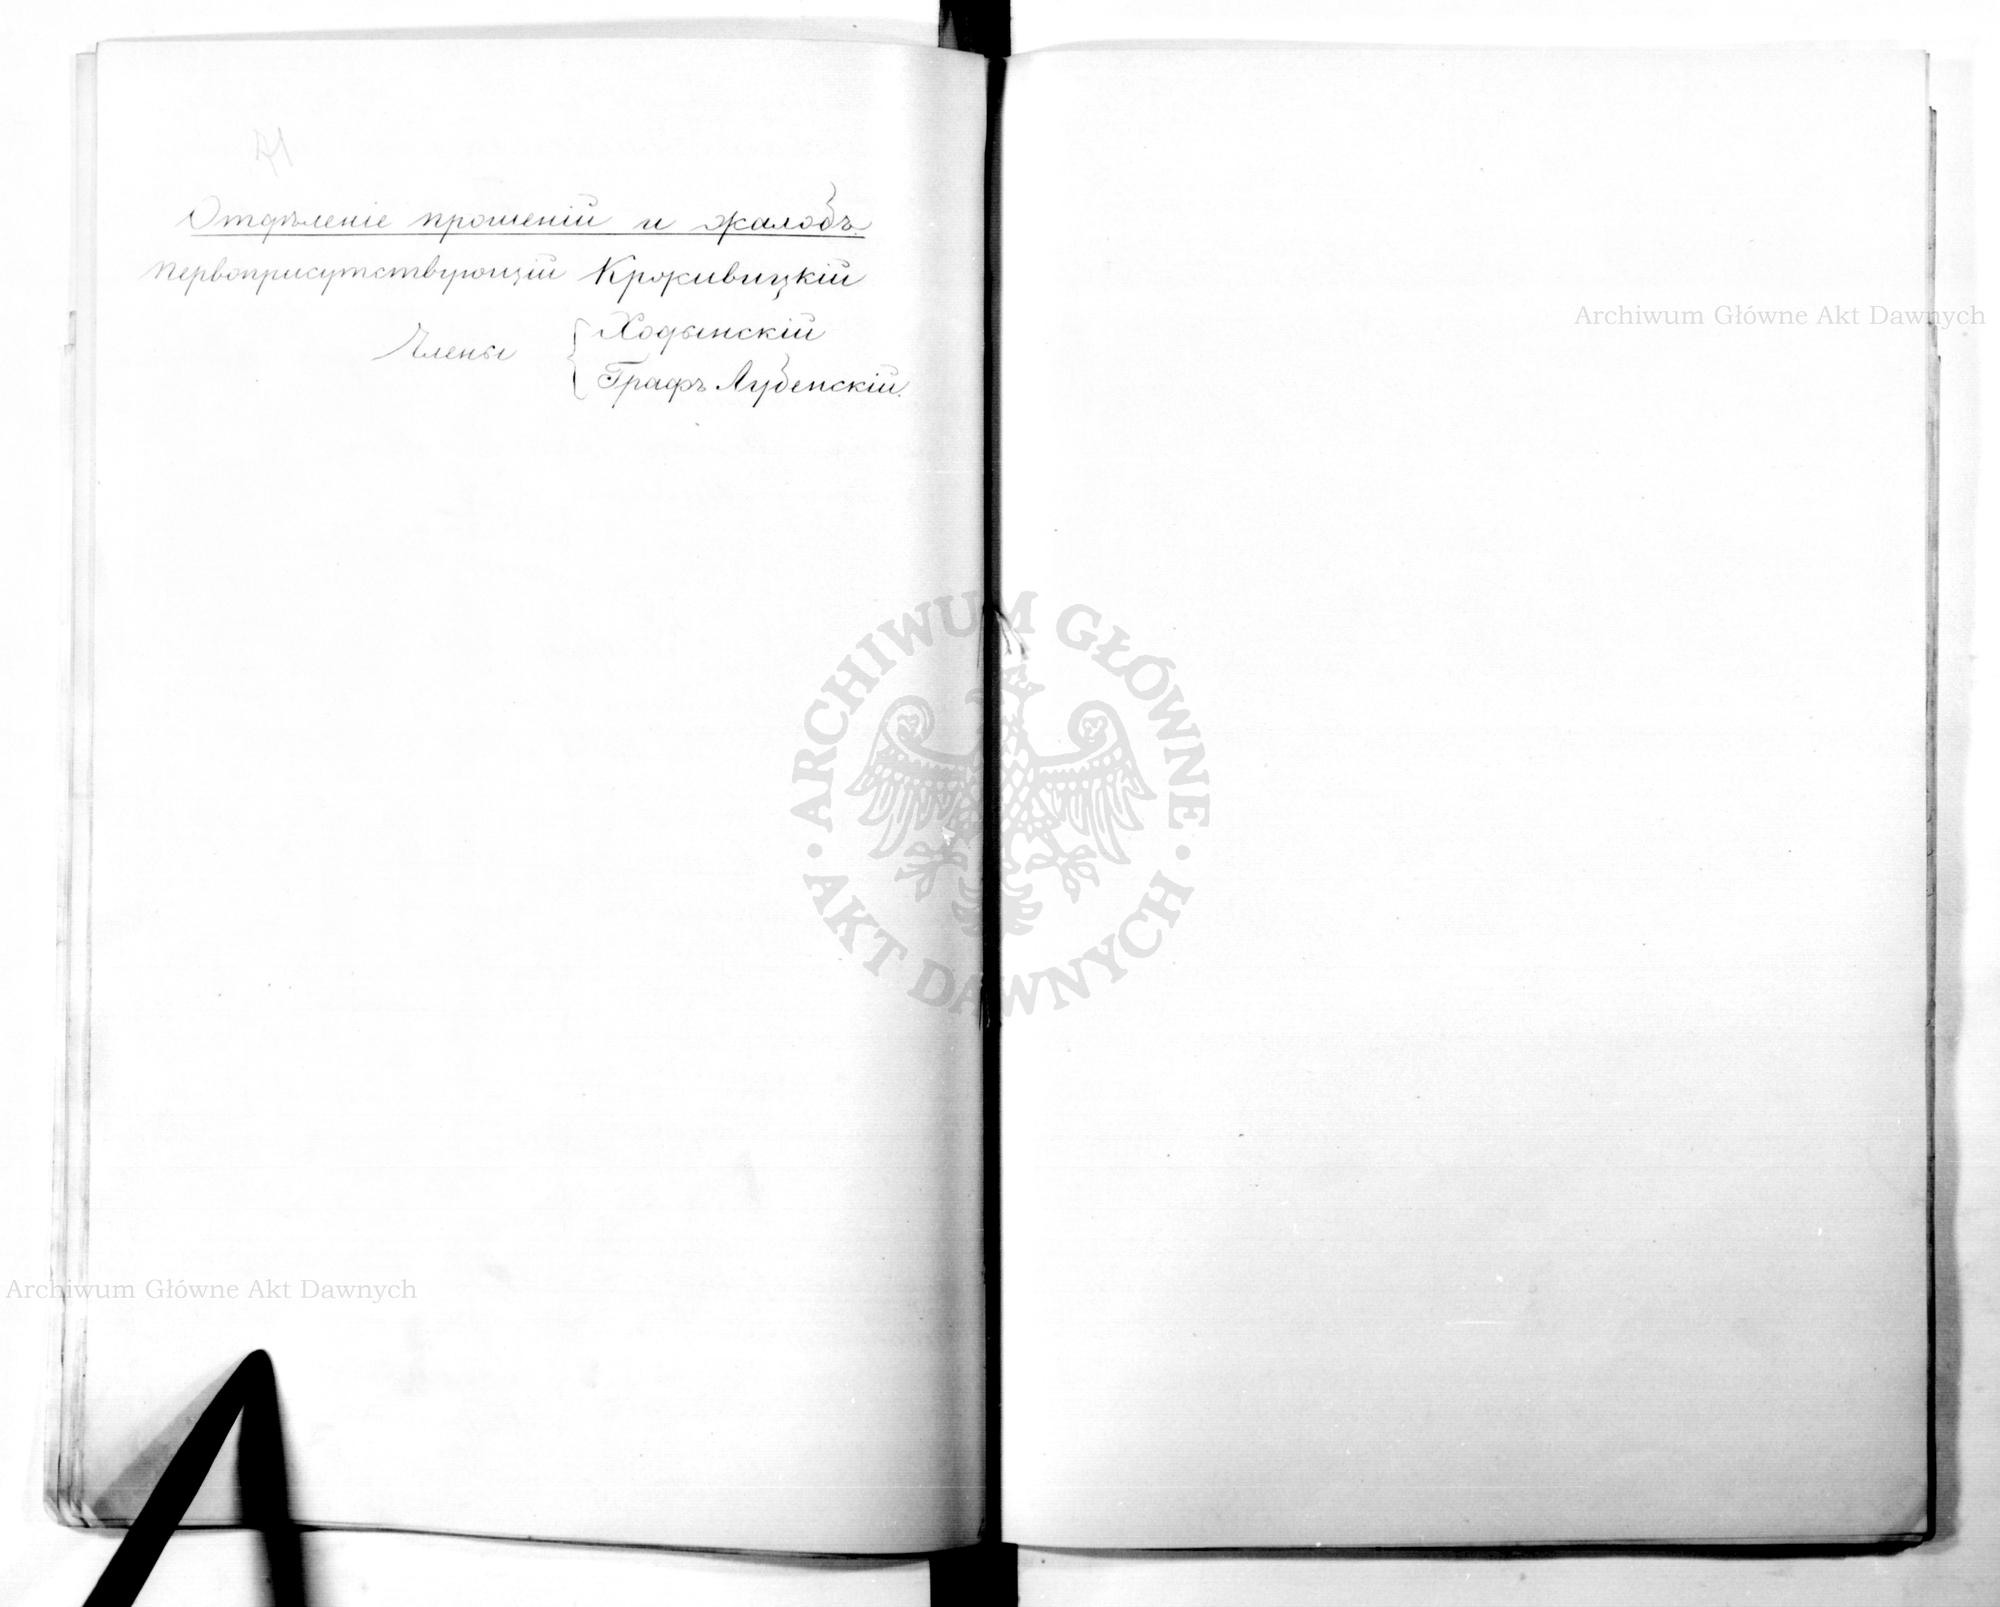 Отдѣленіе прошеній и жалобъ.
Первоприсутствующій Крживицкій
Члены { Ходынскій
Графъ Лубенскій.
Archiwum Główne Akt Dawnych
ARCHIWUM GŁÓWNE · AKT DAWNYCH ·
Archiwum Główne Akt Dawnych